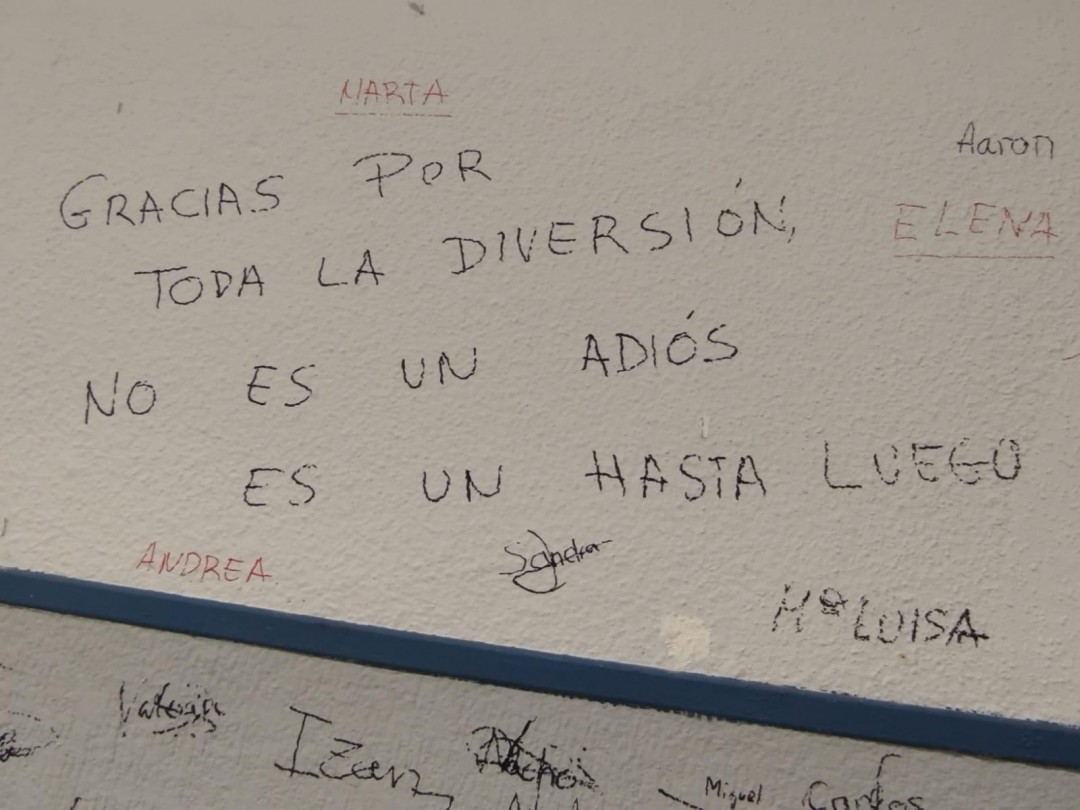 MARTA
Aaron
GRACIAS POR
ELENA
TODA LA DIVERSIÓN,
NO ES UN ADIÓS
ES UN HASTA LUEGO
ANDREA
Mª LUISA
Izan
Miguel
Carlos